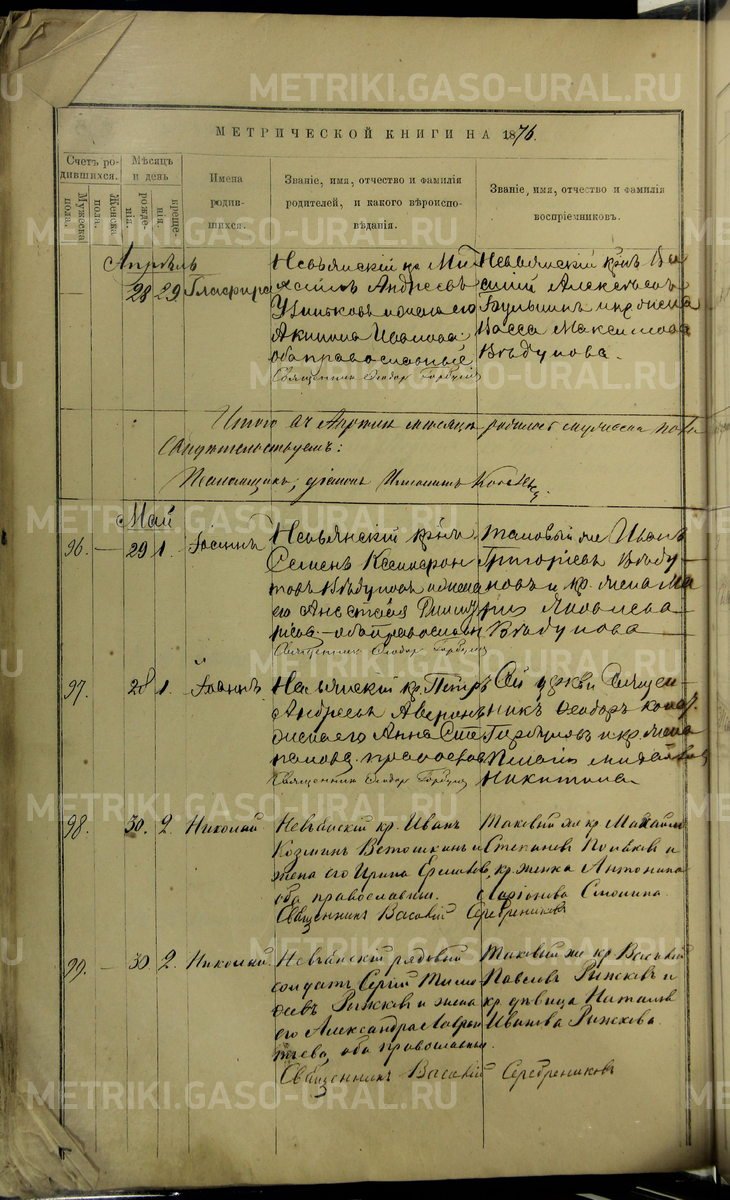 METRIKI.GASO-URAL.RU
МЕТРИЧЕСКОЙ КНИГИ НА 1876.
Счетъ родившихся.
Мужеска пола.
Женска пола.
Мѣсяцъ и день
рожденія.
крещенія.
Имена родившихся.
Званіе, имя, отчество и фамилія родителей, и какого вѣроисповѣданія.
Званіе, имя, отчество и фамилія воспріемниковъ.
Апрѣль
28 29 Глафира
Невьянскій кр. Ми
хаилъ Андреевъ
и жена его
Акилина Иванова
оба православные
Священникъ Ѳеодоръ Горбуновъ
Невьянскій крнъ Ва
силій Алексѣевъ
и кр. жена
Васса Максимова
Вѣдунова.
Итого въ Апрѣлѣ мѣсяцѣ родилось мужеска пола
Свидѣтельствуемъ:
Май
96. — 29 1. Іоаннъ
Невьянскій крнъ
Семенъ
Вѣдуновъ и жена
его Анастасія Димит
ріева — оба православн
Священникъ Ѳеодоръ Горбуновъ
Таковый же Иванъ
Григорьевъ Вѣду-
новъ и кр. жена Ма
рія Яковлева
Вѣдунова
97. 28 1. Іоаннъ
Невьянскій кр. Петръ
Андреевъ Аверинъ
жена его Анна Сте
панова. православ
Священникъ Ѳеодоръ Горбуновъ
Сей церкви Священ-
никъ Ѳеодоръ
Горбуновъ и кр. жена
Пелагія Михайлова
Никитина
98. 30. 2. Николай
Невьянскій кр. Иванъ
Козминъ Ветошкинъ и
жена его Ирина
оба православные.
Священникъ Василій Серебрениковъ
Таковый же кр. Михаилъ
Стефановъ и
кр. женка Антонина
Ларіонова Смолина.
99. — 30 2. Николай
Невьянскій рядовый
солдатъ Сергій Тимо
ѳеевъ Рыжковъ и жена
его Александра Лаврен
тьева, оба православные.
Священникъ Василій Серебрениковъ
Таковый же кр. Василій
Павловъ Рыжковъ и
кр. дѣвица Наталья
Иванова Рыжкова.